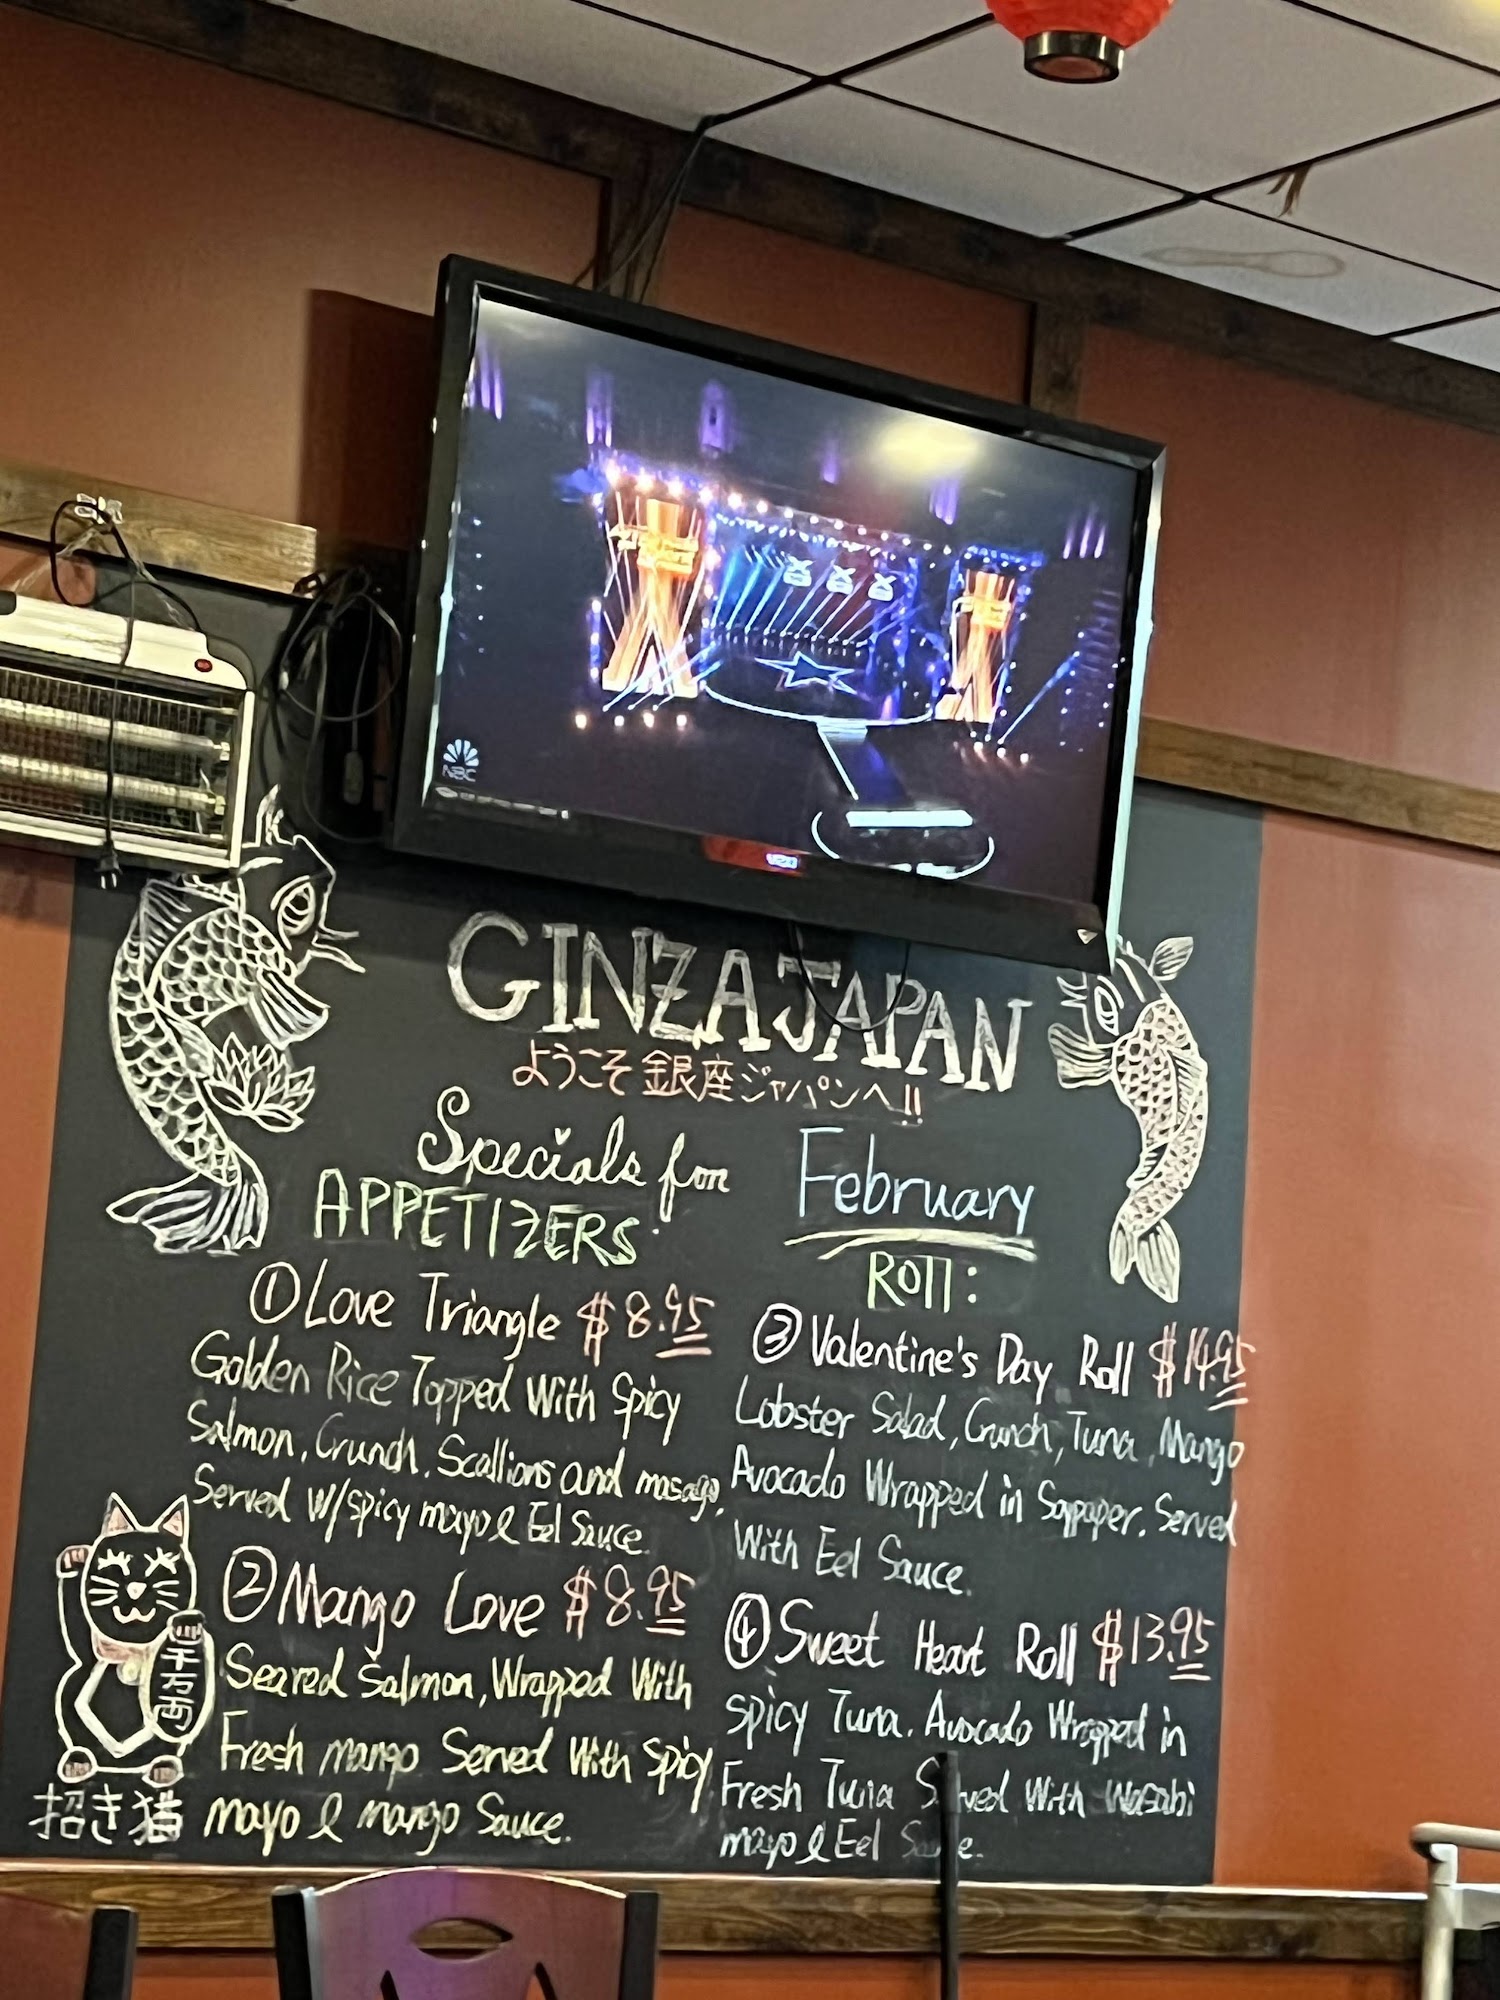 NBC
GINZA JAPAN
ようこそ銀座ジャパンへ!!
Specials for February
APPETIZERS:
① Love Triangle $8.95
Golden Rice Topped With Spicy
Salmon, Crunch, Scallions and masago,
Served w/ spicy mayo & Eel Sauce.
② Mango Love $8.95
Seared Salmon, Wrapped With
Fresh mango Served With Spicy
mayo & mango Sauce.
Roll:
③ Valentine's Day Roll $14.95
Lobster Salad, Crunch, Tuna, Mango
Avocado Wrapped in Soypaper. Served
With Eel Sauce.
④ Sweet Heart Roll $13.95
Spicy Tuna, Avocado Wrapped in
Fresh Tuna Served With Wasabi
mayo & Eel Sauce.
千万両
招き猫